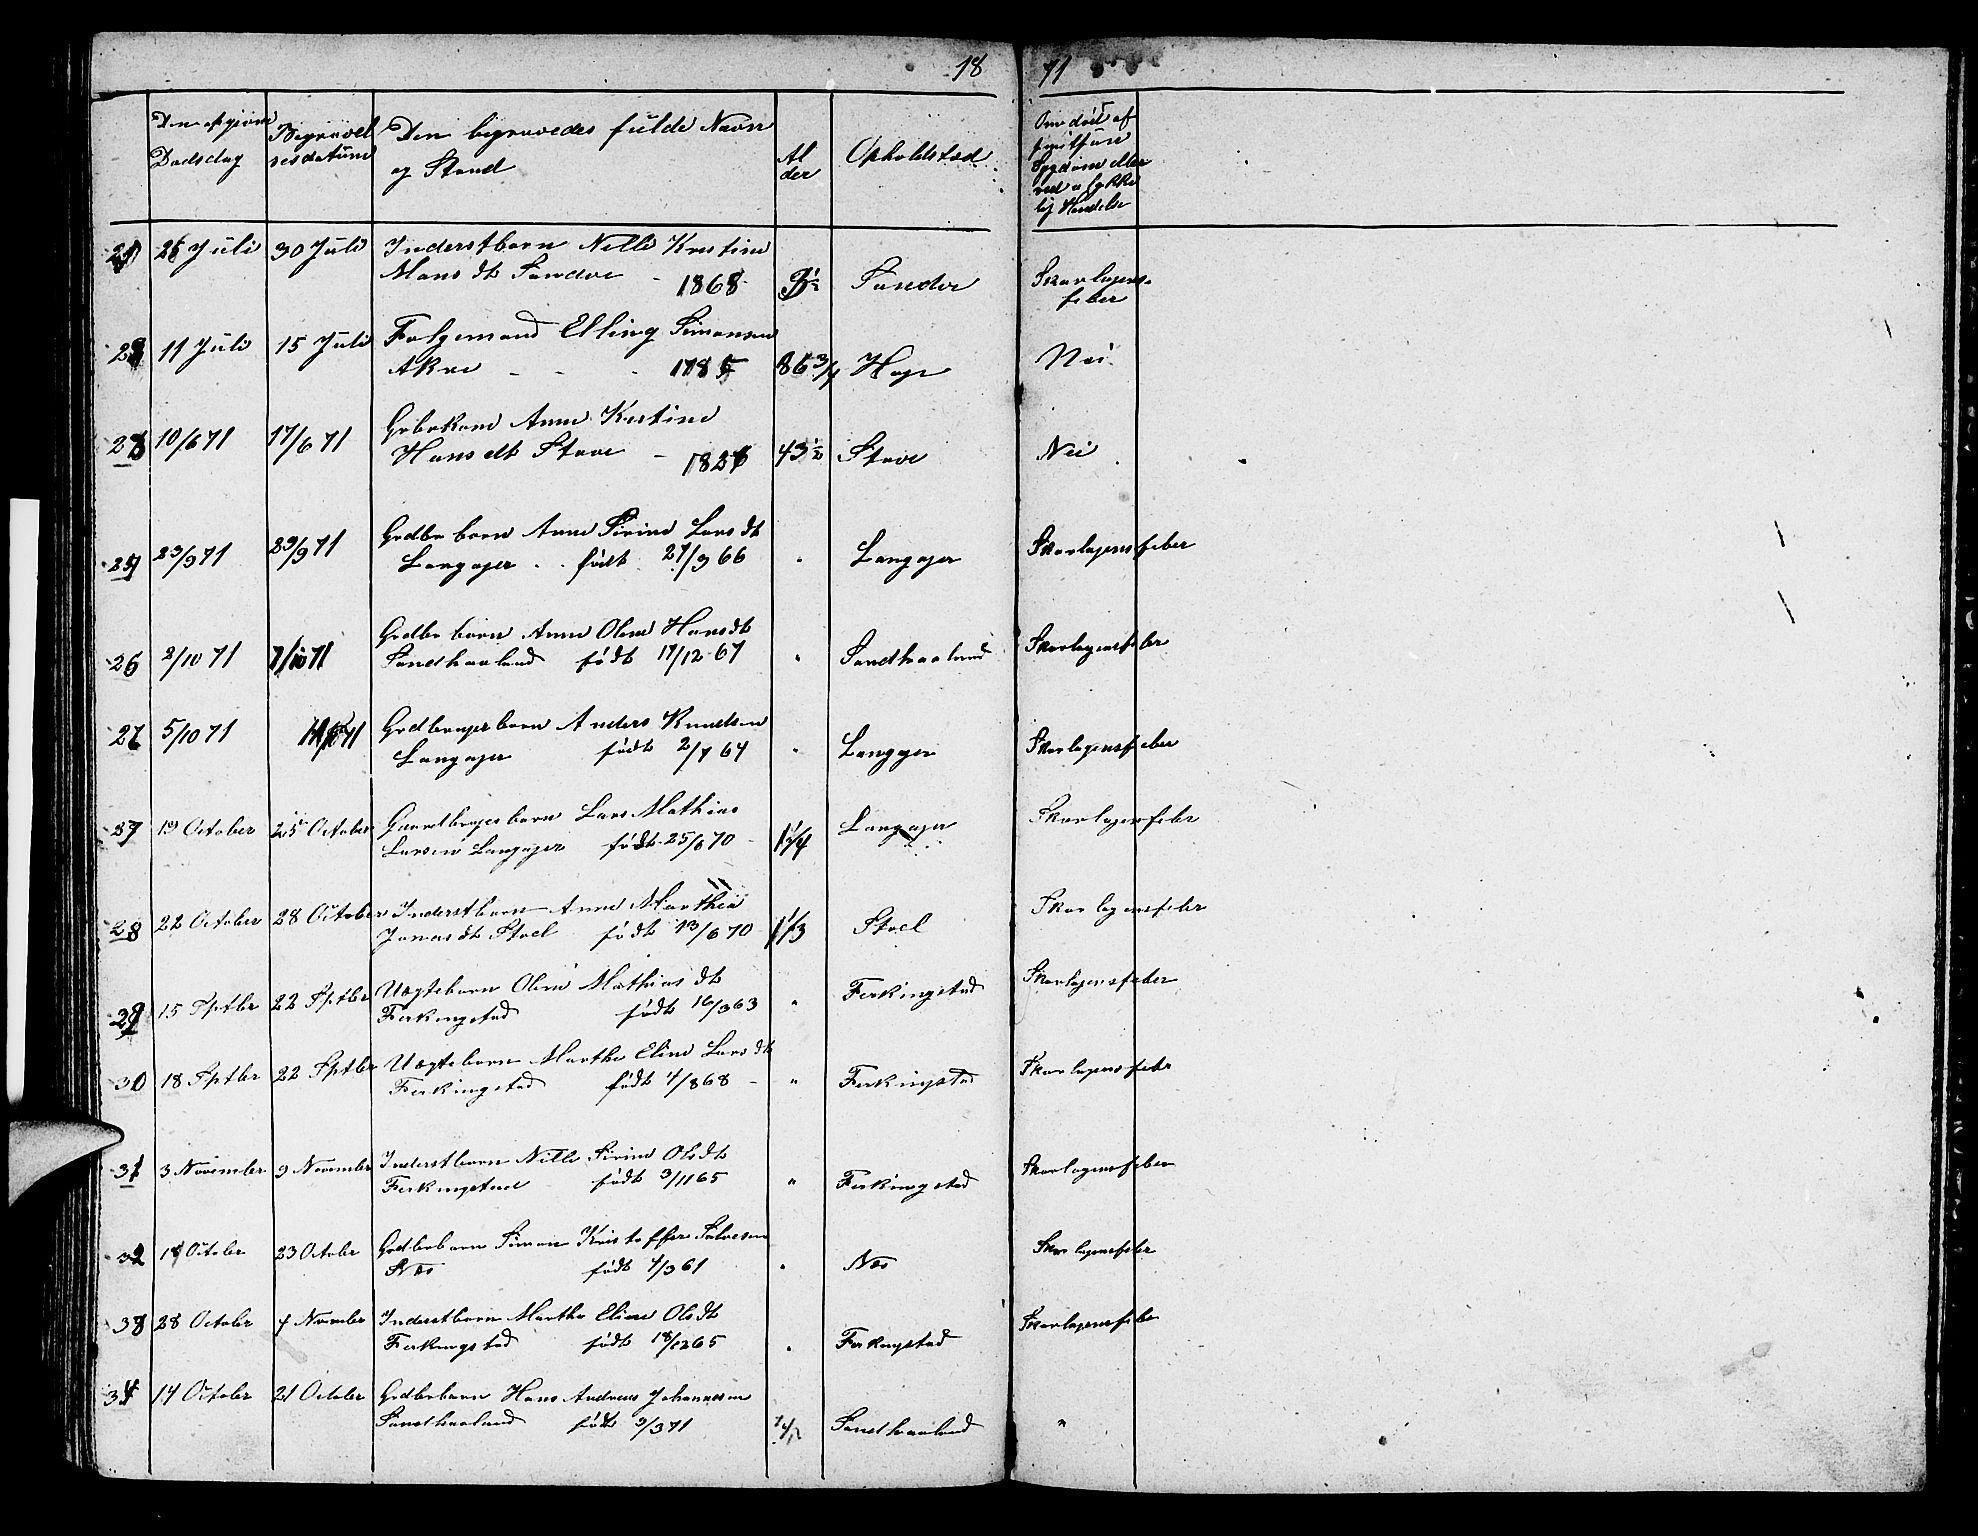 18 71
Den opgivne Dødsdag
Begravelsesdatum
Den begravedes fulde Navn og Stand
Alder
Opholdsted
Om død af smitsom Sygdom eller ved ulykkelig Hændelse
26 Juli 30 Juli Inderstbarn Nille Kristine
Mons dt Sandve - 1868 3½ Sandve Skarlagensfeber
11 Juli 15 Juli Følgemand Elling Simonsen
Akre - - - 1785 86 3/4 Nei
10/6 71 17/6 71 Gbrkone Anne Kristine
Hans dt Stave - 43½ Stave Nei
23/9 71 29/9 71 Grdbr barn Anne Sirine Lars dt
Langager . . født 27/9 66 " Langager Skarlagensfeber
26 2/10 71 7/10 71 Grdbr barn Anne Oline Hans dt
Sandhaaland født 17/12 67 " Sandhaaland Skarlagensfeber
5/10 71 Grdbrugerbarn Anders Knudsen
Langager født 2/7 64 " Langager Skarlagensfeber
27 19 October 25 October Gaardbrugerbarn Lars Mathias
Larsen Langager født 25/6 70 1¼ Langager Skarlagensfeber
28 22 October 28 October Inderstbarn Anne Marthea
Jonas dt Stoel født 13/6 70 1 1/3 Stoel Skarlagensfeber
29 15 Sptbr 22 Sptbr Vægtebarn Oline Mathias dt
Ferkingstad født 16/3 63 " Ferkingstad Skarlagensfeber
30 18 Sptbr 22 Sptbr Vægtebarn Marthe Eline Lars dt
Ferkingstad født 4/8 68 - " Ferkingstad Skarlagensfeber
31 3 November 9 November Inderstbarn Nille Sirine Ols dt
Ferkingstad født 3/11 65 " Ferkingstad Skarlagensfeber
32 18 October 23 Octobr Grdbrbarn Simon Kristoffer Salvesen
Næs født 4/3 61 " Næs Skarlagensfeber
33 28 Octobr 4 November Inderstbarn Marthe Eline Ols dt
Ferkingstad født 18/12 65 " Ferkingstad Skarlagensfeber
34 14 Octobr 21 October Grdbrbarn Hans Andreas Johannesen
Sandhaaland født 9/3 71 Sandhaaland "